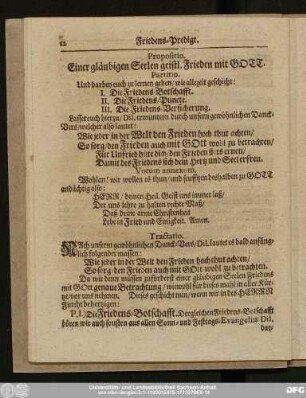 12
Friedens-Predigt.
Propositio.
Einer gläubigen Seelen geistl. Frieden mit GOTT.
Partitio.
Und darbey euch zu lernen geben / wie allezeit geschicht:
I. Die Friedens Botschafft.
II. Die Friedens-Puncte.
III. Die Friedens-Versicherung.
Lasset euch hierzu / Dil. ermuntern durch unsern gewöhnlichen Danck-
Vers / welcher also lautet:
Wie jeder in der Welt den Frieden hoch thut achten /
So sorg / den Frieden auch mit GOtt wohl zu betrachten /
Für Unfried hüte dich / den Frieden stets erneu /
Damit des Friedens sich dein Hertz und Seel erfreu.
Votum annexum.
Wohlan! wir wollen es thun / und seufftzen deßhalben zu GOTT
andächtig also:
HERR / deinen Heil. Geist uns immer laß /
Der uns lehre zu halten rechte Maß /
Daß deine arme Christenheit
Lebe in Fried und Einigkeit. Amen.
Tractatio.
NAch unserm gewöhnlichen Danck-Vers / Dil. lautet es bald anfäng-
lich folgender massen:
Wie jeder in der Welt den Frieden hoch thut achten /
So sorg den Frieden auch mit GOtt wohl zu betrachten.
Da wir denn müssen zuförderst einer gläubigen Seelen Friedens
mit GOtt genaue Betrachtung / wiewohl für dieses mahl in aller Kür-
tze vor uns nehmen. Dieses geschicht nun / wenn wir in des HERRN
Furcht behertzigen:
P. I. Die Friedens-Botschafft. Dergleichen Friedens-Botschafft
hören wir auch sonsten aus allen Sonn- und Festtags-Evangelin Dil.
Universitäts- und Landesbibliothek Sachsen-Anhalt